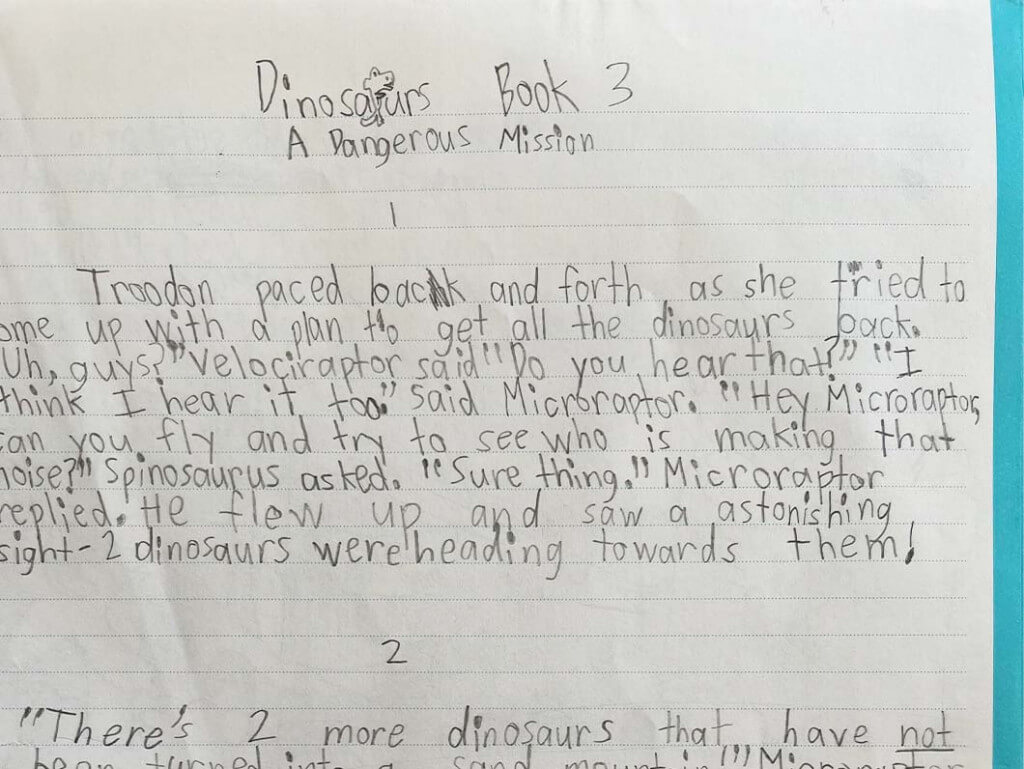 Dinosaurs Book 3
A Dangerous Mission
1
Troodon paced back and forth, as she tried to
ome up with a plan to get all the dinosaurs back.
Uh, guys?" Velociraptor said "Do you hear that?" "I
think I hear it too." Said Microraptor. "Hey Microraptor,
can you fly and try to see who is making that
noise?" Spinosaurus asked. "Sure thing." Microraptor
replied. He flew up and saw a astonishing
sight-2 dinosaurs were heading towards them!
2
"There's 2 more dinosaurs that have not
been turned into a sand mountin!"